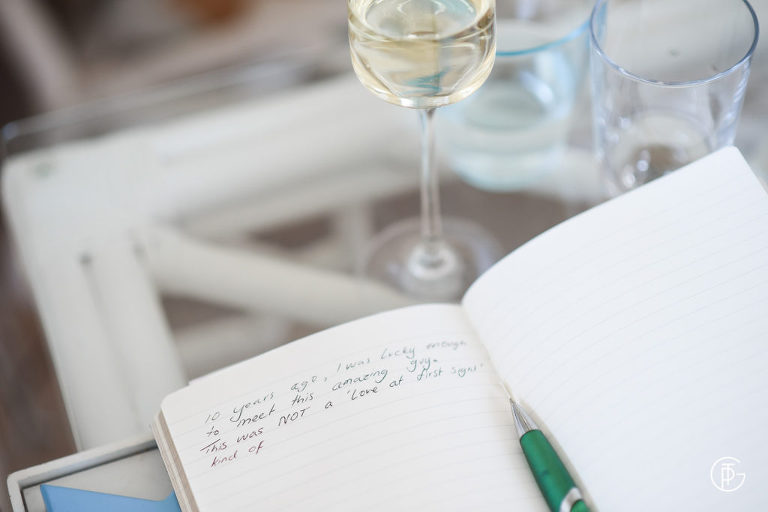 10 years ago, I was lucky enough
to meet this amazing guy.
This was NOT a 'love at first sight'
kind of